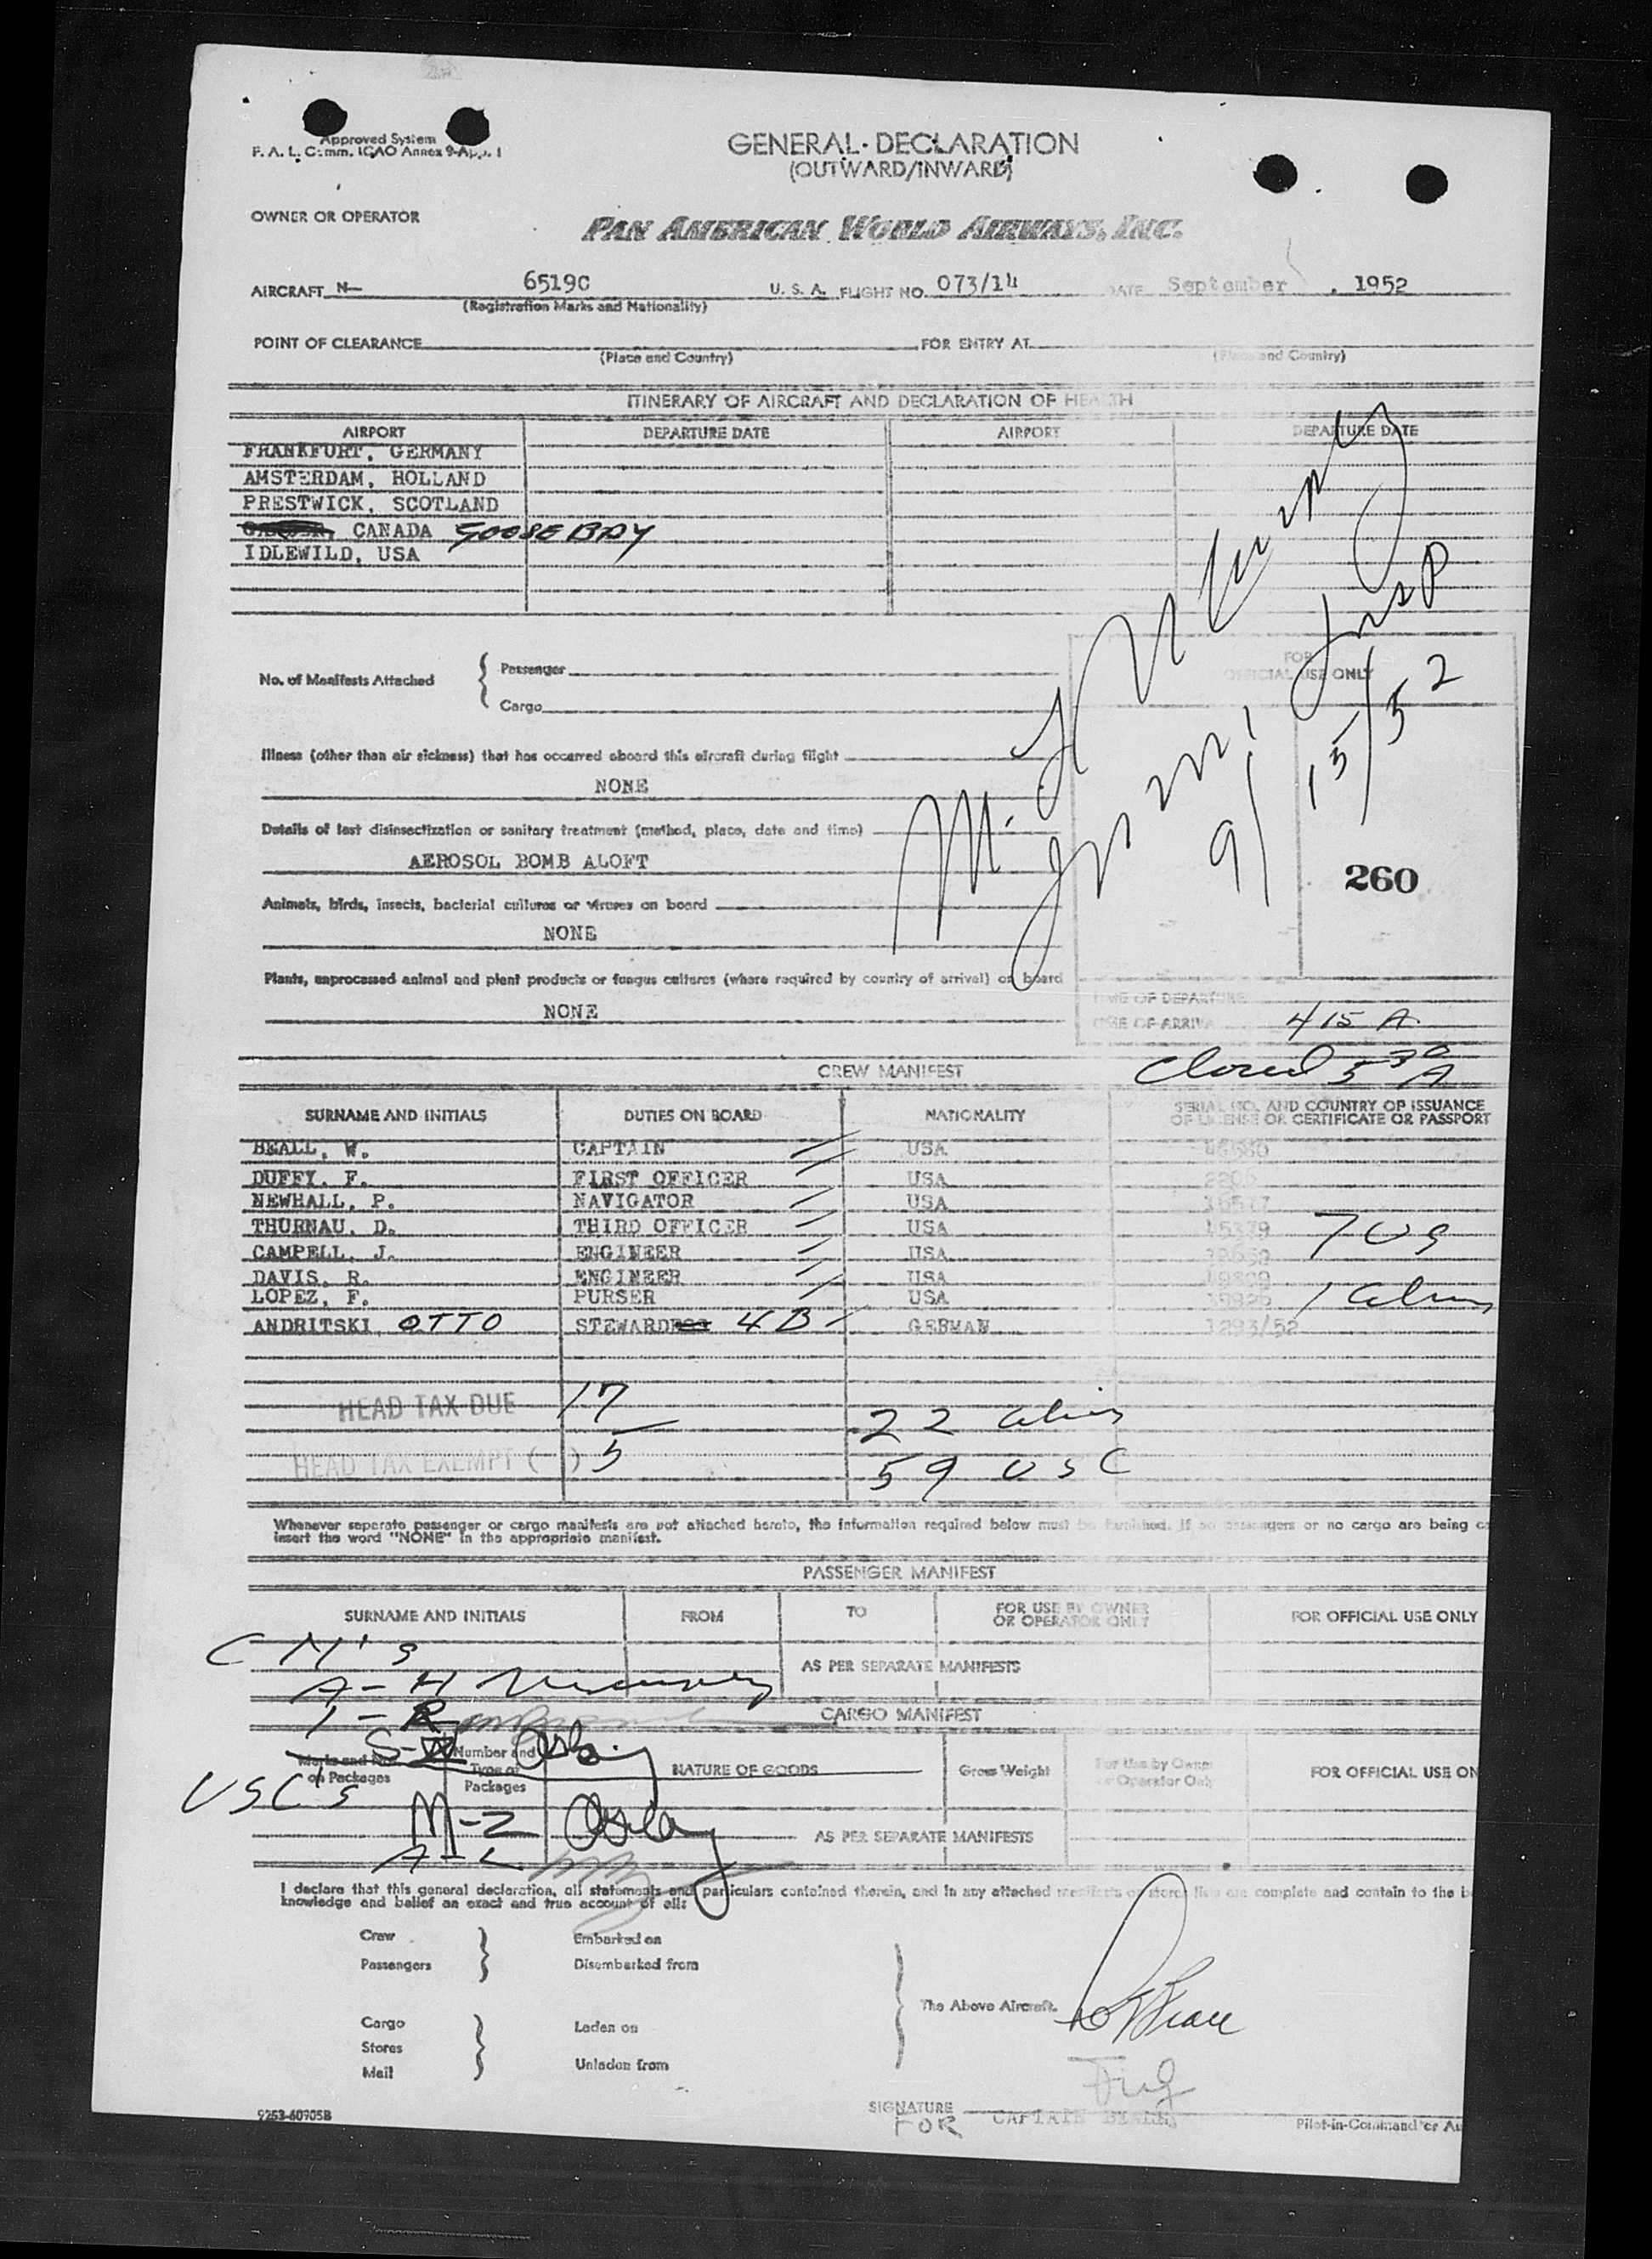 Approved System
F. A. L. Comm. ICAO Annex 9-App. 1
GENERAL DECLARATION
(OUTWARD/INWARD)
OWNER OR OPERATOR
PAN AMERICAN WORLD AIRWAYS, INC.
AIRCRAFT N- 6519C U. S. A. FLIGHT NO. 073/14 DATE September , 1952
(Registration Marks and Nationality)
POINT OF CLEARANCE FOR ENTRY AT
(Place and Country) (Place and Country)
ITINERARY OF AIRCRAFT AND DECLARATION OF HEALTH
AIRPORT DEPARTURE DATE AIRPORT DEPARTURE DATE
FRANKFURT, GERMANY
AMSTERDAM, HOLLAND
PRESTWICK, SCOTLAND
CANADA GOOSE BAY
IDLEWILD, USA
No. of Manifests Attached
Passenger
Cargo
FOR
OFFICIAL USE ONLY
Insp
9/15/52
260
Illness (other than air sickness) that has occurred aboard this aircraft during flight
NONE
Details of last disinsectization or sanitary treatment (method, place, date and time)
AEROSOL BOMB ALOFT
Animals, birds, insects, bacterial cultures or viruses on board
NONE
Plants, unprocessed animal and plant products or fungus cultures (where required by country of arrival) on board
NONE
TIME OF DEPARTURE
TIME OF ARRIVAL 415 A
Closed 530 A
CREW MANIFEST
SURNAME AND INITIALS DUTIES ON BOARD NATIONALITY SERIAL NO. AND COUNTRY OF ISSUANCE
OF LICENSE OR CERTIFICATE OR PASSPORT
BEALL, W. CAPTAIN USA
DUFFY, F. FIRST OFFICER USA
NEWHALL, P. NAVIGATOR USA
THURNAU, D. THIRD OFFICER USA 15379 7 US
CAMPELL, J. ENGINEER USA
DAVIS, R. ENGINEER USA
LOPEZ, F. PURSER USA 1 alien
ANDRITSKI, OTTO STEWARD 4B GERMAN 1293/52
HEAD TAX DUE 17 22 alien
HEAD TAX EXEMPT ( ) 5 59 USC
Whenever separate passenger or cargo manifests are not attached hereto, the information required below must be furnished. If no passengers or no cargo are being
insert the word "NONE" in the appropriate manifest.
PASSENGER MANIFEST
SURNAME AND INITIALS FROM TO FOR USE BY OWNER
OR OPERATOR ONLY FOR OFFICIAL USE ONLY
C M's
AS PER SEPARATE MANIFESTS
A-H
I-R
CARGO MANIFEST
Marks and Nos.
on Packages
Number and
Type of
Packages
NATURE OF GOODS Gross Weight For Use by Owner
or Operator Only FOR OFFICIAL USE ON
USC's
M-Z
AS PER SEPARATE MANIFESTS
A-L
I declare that this general declaration, all statements and particulars contained therein, and in any attached manifests or stores lists are complete and contain to the
knowledge and belief an exact and true account of all:
Crew
Passengers
Embarked on
Disembarked from
The Above Aircraft.
Cargo
Stores
Mail
Laden on
Unladen from
SIGNATURE
FOR CAPTAIN BEALL
Pilot-in-Command or Au
9253-60905B